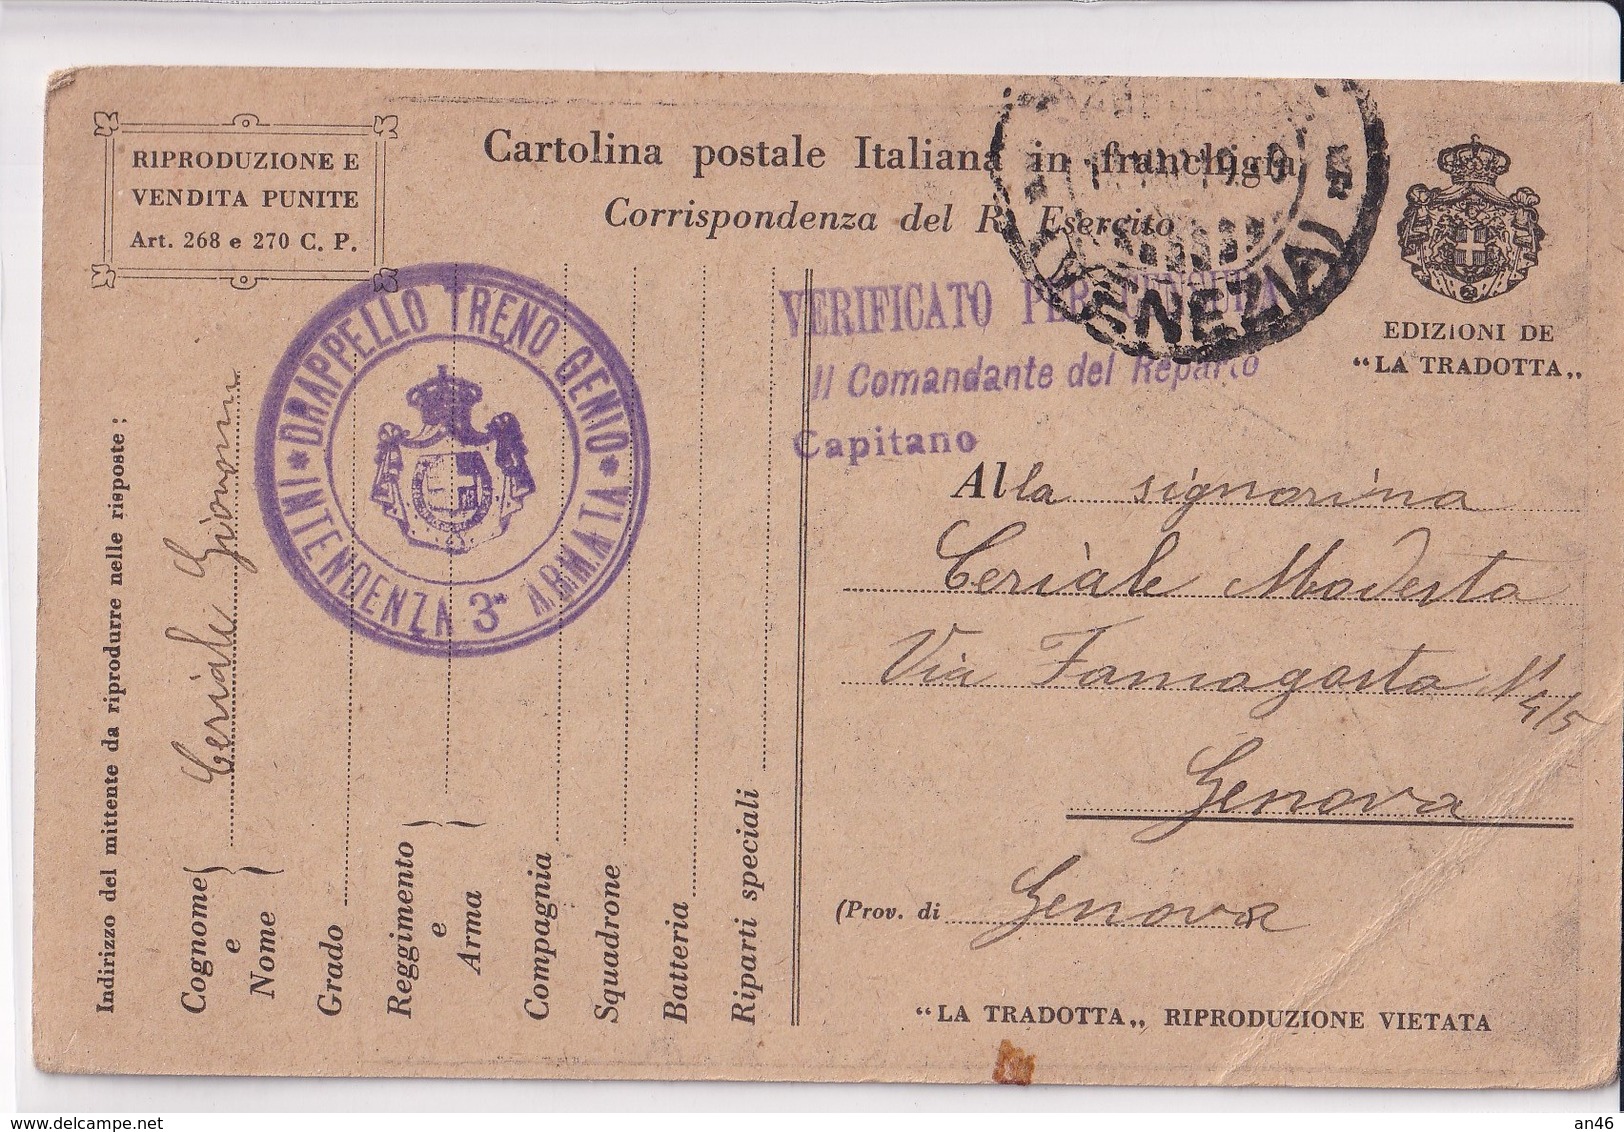 RIPRODUZIONE E
VENDITA PUNITE
Art. 268 e 270 C. P.
Cartolina postale Italiana in franchigia
Corrispondenza del R. Esercito
VENEZIA
EDIZIONI DE
“LA TRADOTTA„
VERIFICATO PER CENSURA
Il Comandante del Reparto
Capitano
DRAPPELLO TRENO GENIO
* INTENDENZA 3ª ARMATA *
Indirizzo del mittente da riprodurre nelle risposte ;
Cognome e Nome Ceriale Giovanni
Grado
Reggimento e Arma
Compagnia
Squadrone
Batteria
Riparti speciali
Alla signorina
Ceriale Modesta
Via Famagosta N 4/5
Genova
(Prov. di Genova
“LA TRADOTTA„ RIPRODUZIONE VIETATA
www.delcampe.net
an46